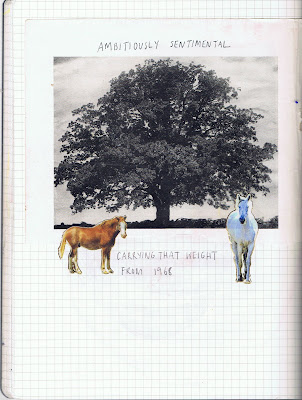 AMBITIOUSLY SENTIMENTAL
CARRYING THAT WEIGHT
FROM 1968